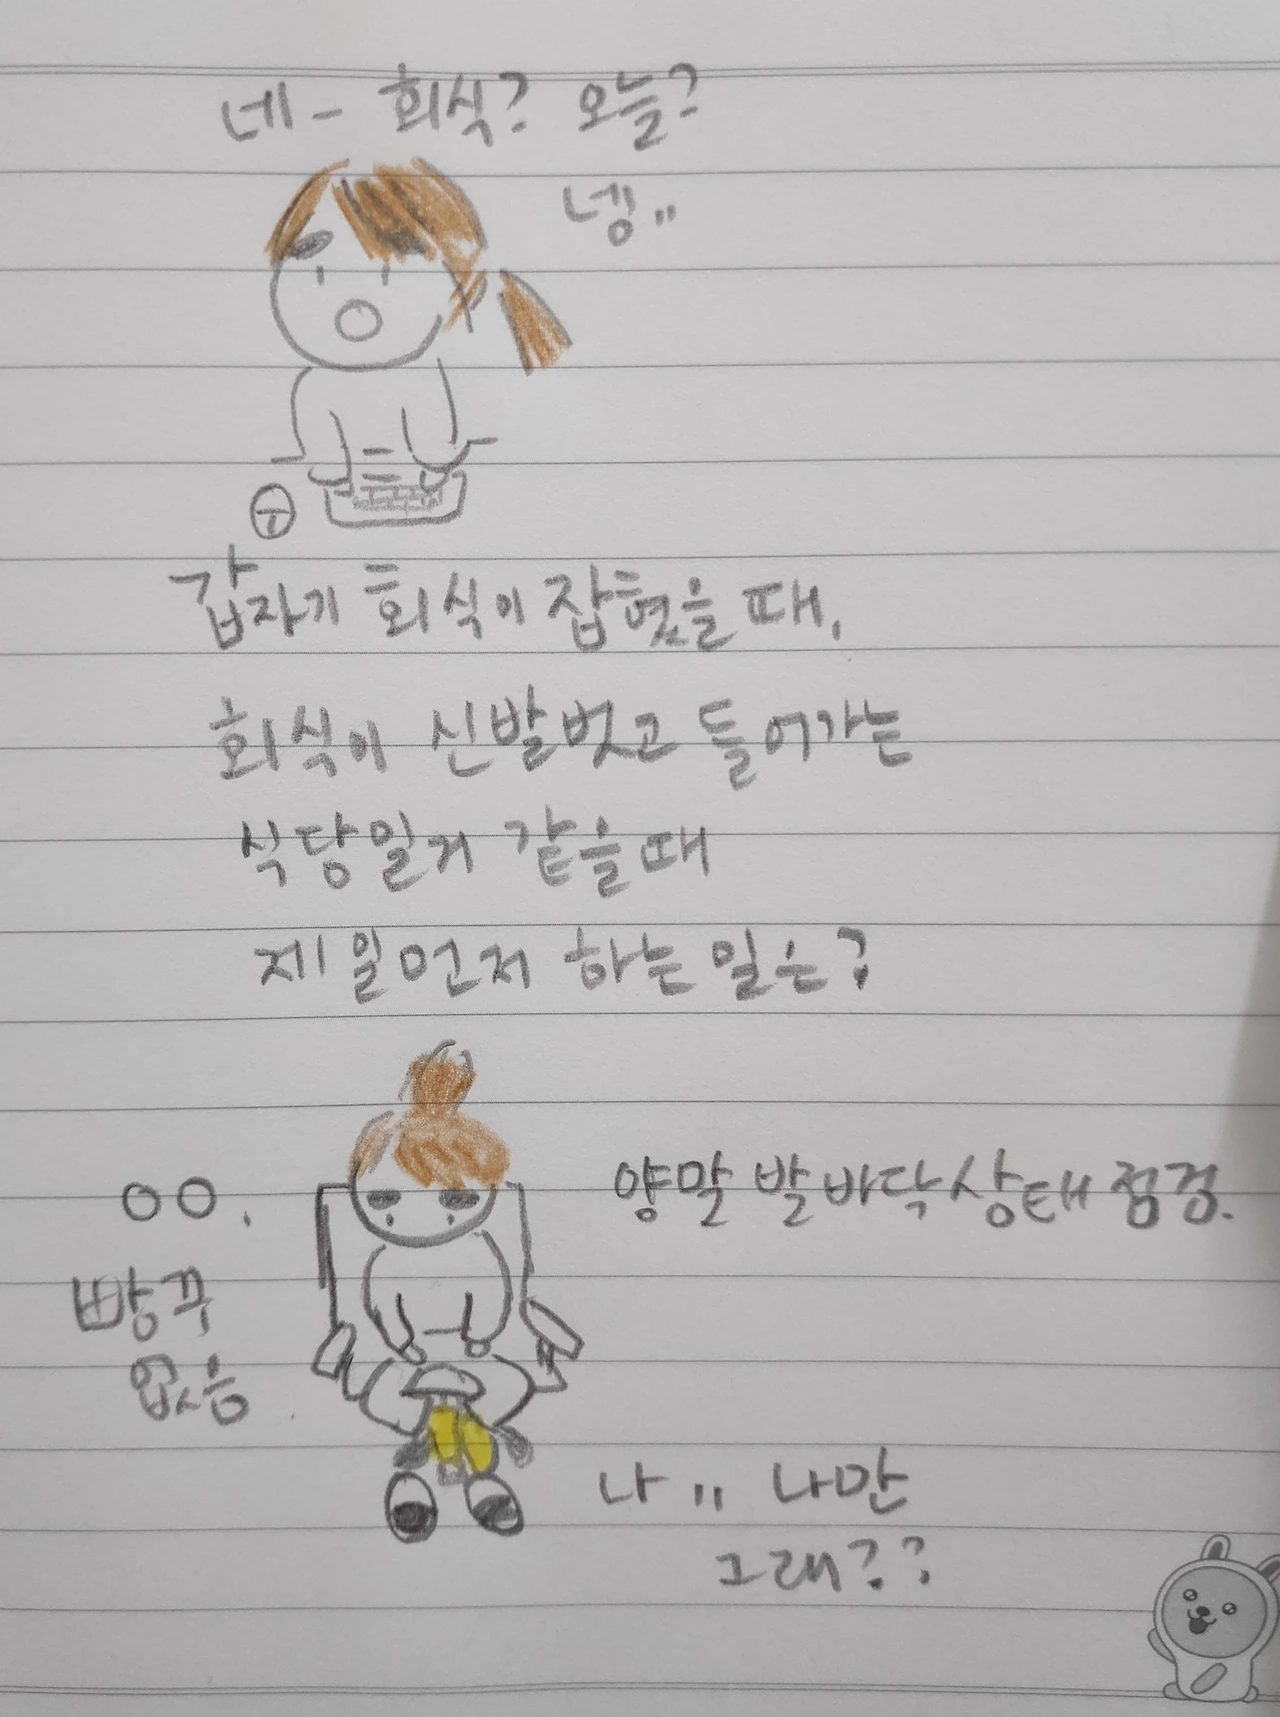 네- 회식? 오늘?
넹..
갑자기 회식이 잡혔을 때,
회식이 신발벗고 들어가는
식당일거 같을때
제일먼저 하는 일은?
양말 발바닥상태 점검.
ㅇㅇ.
빵꾸
없음
나.. 나만
그래??